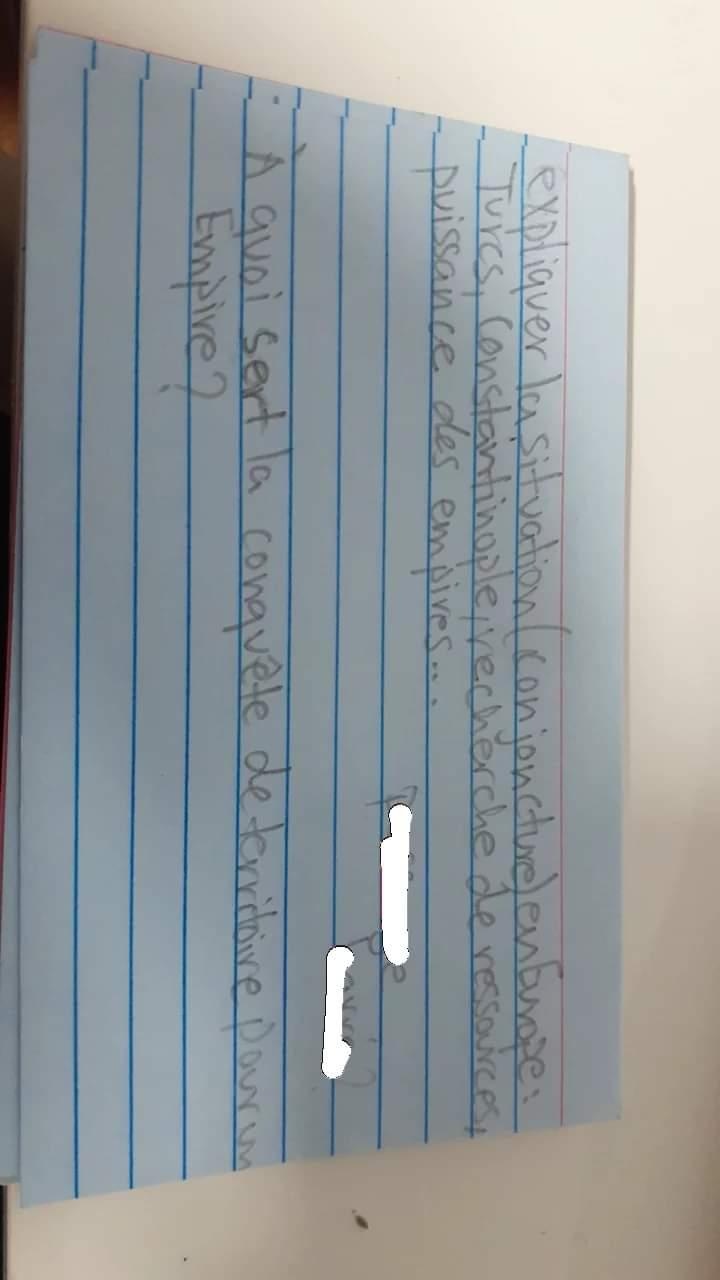 expliquer la situation (conjoncture) en Europe:
Turcs, Constantinople, recherche de ressources,
puissance des empires...
À quoi sert la conquête de territoire pour un
Empire?